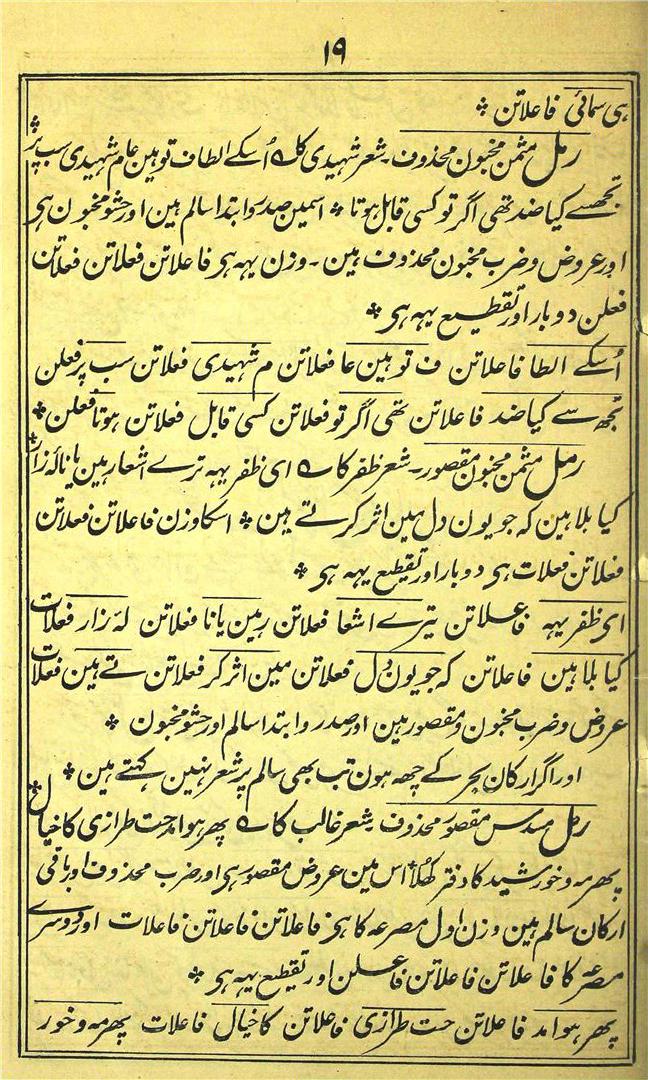 ۱۹
ہی سمائی فاعلاتن ❊
رمل مثمن مخبون محذوف۔ شعر شہیدی کا؎ اُسکے الطاف تو ہین عام شہیدی سب پر ❊
تجھسے کیا ضد تھی اگر تو کسی قابل ہوتا ❊ اسمین صدر و ابتدا سالم ہین اور حشو مخبون ہی
اور عروض و ضرب مخبون محذوف ہین۔ وزن یہہ ہی فاعلاتن فعلاتن فعلاتن
فعلن دو بار اور تقطیع یہہ ہی ❊
اُسکے الطا فاعلاتن ف تو ہین عا فعلاتن م شہیدی فعلاتن سب پر فعلن
تجھ سے کیا ضد فاعلاتن تھی اگر تو فعلاتن کسی قابل فعلاتن ہوتا فعلن ❊
رمل مثمن مخبون مقصور۔ شعر ظفر کا؎ ای ظفر یہہ ترے اشعار ہین یا نالۂ زار ❊
کیا بلا ہین کہ جو یون دل مین اثر کرتے ہین ❊ اسکا وزن فاعلاتن فعلاتن
فعلاتن فعلات ہی دو بار اور تقطیع یہہ ہی ❊
ای ظفر یہہ فاعلاتن تیرے اشعا فعلاتن رہین یا نا فعلاتن لۂ زار فعلات
کیا بلا ہین فاعلاتن کہ جو یون دل فعلاتن مین اثر کر فعلاتن تے ہین فعلات
عروض و ضرب مخبون و مقصور ہین اور صدر و ابتدا سالم اور حشو مخبون ❊
اور اگر ارکان بحر کے چھہ ہون تب بھی سالم پر شعر نہین کہتے ہین ❊
رمل مسدس مقصور محذوف۔ شعر غالب کا؎ پھر ہوا مدحت طرازی کا خیال ❊
پھر مہ و خورشید کا دفتر کھلا ❊ اس مین عروض مقصور ہی اور ضرب محذوف اور باقی
ارکان سالم ہین وزن اول مصرعہ کا ہی فاعلاتن فاعلاتن فاعلات اور دوسرے
مصرعہ کا فاعلاتن فاعلاتن فاعلن اور تقطیع یہہ ہی ❊
پھر ہوا مد فاعلاتن حت طرازی فاعلاتن کا خیال فاعلات پھر مہ و خور